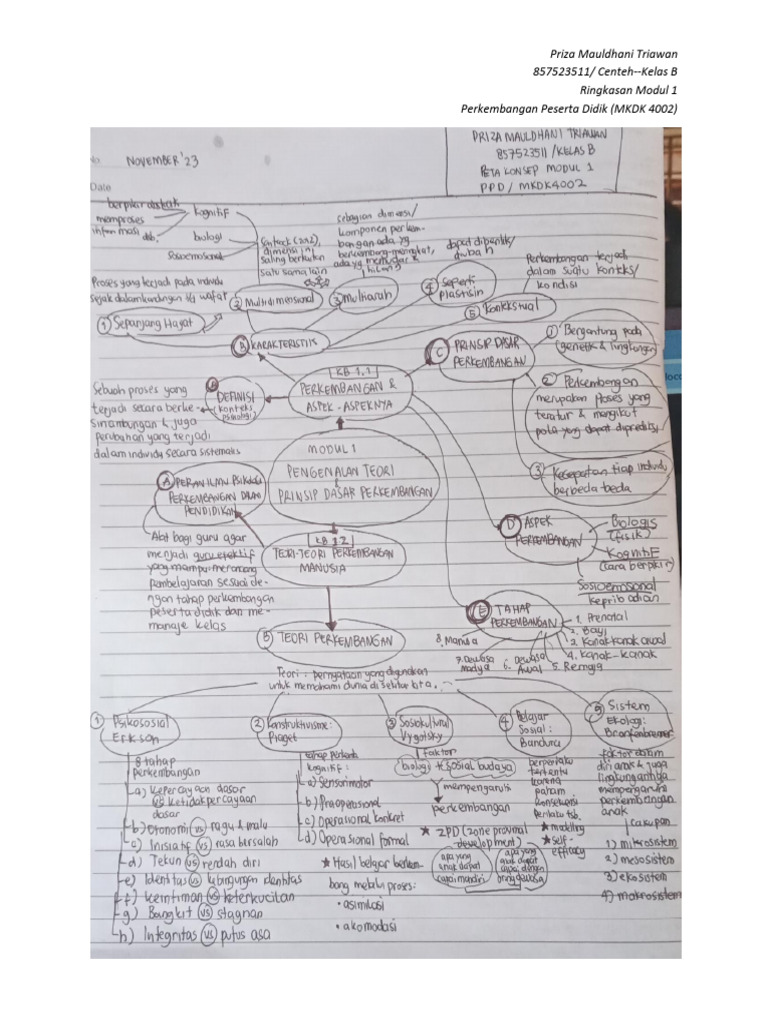 Priza Mauldhani Triawan
857523511/ Centeh--Kelas B
Ringkasan Modul 1
Perkembangan Peserta Didik (MKDK 4002)
No
NOVEMBER '23
Date
PRIZA MAULDHANI TRIAWAN
857523511 /KELAS B
PETA KONSEP MODUL 1
PPD / MKDK4002
berpikir abstrak
memproses
informasi
dsb,
kognitif
biologi
sosioemosional
Santrock (2012),
dimensi ini
saling berkaitan
satu sama lain
sebagian dimensi/
komponen perkem-
bangan ada yg
berkembang-meningkat,
ada yg memudar &
hilang
dapat dibentuk/
diubah
Perkembangan terjadi
dalam suatu konteks/
kondisi
Proses yang terjadi pada individu
sejak dalam kandungan s/d wafat
① Sepanjang Hayat
② Multidimensional
③ Multiarah
④ Seperti
plastisin
⑤ Kontekstual
B KARAKTERISTIK
C PRINSIP DASAR
PERKEMBANGAN
① Bergantung pada
(genetik & lingkungan)
② Perkembangan
merupakan proses yang
teratur & mengikuti
pola yang dapat diprediksi
③ Kecepatan tiap individu
berbeda beda
Sebuah proses yang
terjadi secara berke-
sinambungan & juga
perubahan yang terjadi
dalam individu secara sistematis
DEFINISI
(konteks
psikologi)
KB 1.1
PERKEMBANGAN &
ASPEK - ASPEKNYA
MODUL 1
PENGENALAN TEORI
&
PRINSIP DASAR PERKEMBANGAN
A PERAN ILMU PSIKOLOGI
PERKEMBANGAN DALAM
PENDIDIKAN
Alat bagi guru agar
menjadi guru efektif
yang mampu merancang
pembelajaran sesuai de-
ngan tahap perkembangan
peserta didik dan me-
manaje kelas
KB 1.2
TEORI-TEORI PERKEMBANGAN
MANUSIA
B TEORI PERKEMBANGAN
D ASPEK
PERKEMBANGAN
Biologis
(fisik)
Kognitif
(cara berpikir)
Sosioemosional
kepribadian
E TAHAP
PERKEMBANGAN
1. Prenatal
2. Bayi
3. Kanak kanak awal
4. Kanak - kanak
5. Remaja
6. Dewasa
Awal
7. Dewasa
madya
8. Manula
Teori : pernyataan yang digunakan
untuk memahami dunia di sekitar kita.
① Psikososial
Erikson
8 tahap
perkembangan
a) Kepercayaan dasar
vs ketidakpercayaan
dasar
b) Otonomi vs ragu & malu
c) Inisiatif vs rasa bersalah
d) Tekun vs rendah diri
e) Identitas vs kebingungan identitas
f) Keintiman vs keterkucilan
g) Bangkit vs stagnan
h) Integritas vs putus asa
② Konstruktivisme:
Piaget
tahap Perkemb.
Kognitif :
a) Sensorimotor
b) Praoperasional
c) Operasional konkret
d) Operasional formal
★ Hasil belajar berkem-
bang melalui proses:
• asimilasi
• akomodasi
③ Sosiokultural
Vygotsky
faktor
biologi * sosial budaya
mempengaruhi
perkembangan
★ ZPD (zone proximal
development)
apa yang
anak dapat
capai mandiri
apa yang
anak dapat
capai dengan
orang dewasa
④ Belajar
Sosial :
Bandura
berperilaku
tertentu
karena
paham
konsekuensi
perilaku tsb.
★ modeling
★ self-
efficacy
⑤ Sistem
Ekologi:
Bronfenbrenner
faktor dalam
diri anak & juga
lingkungannya
mempengaruhi
perkembangan
anak
cakupan
1) mikrosistem
2) mesosistem
3) ekosistem
4) makrosistem